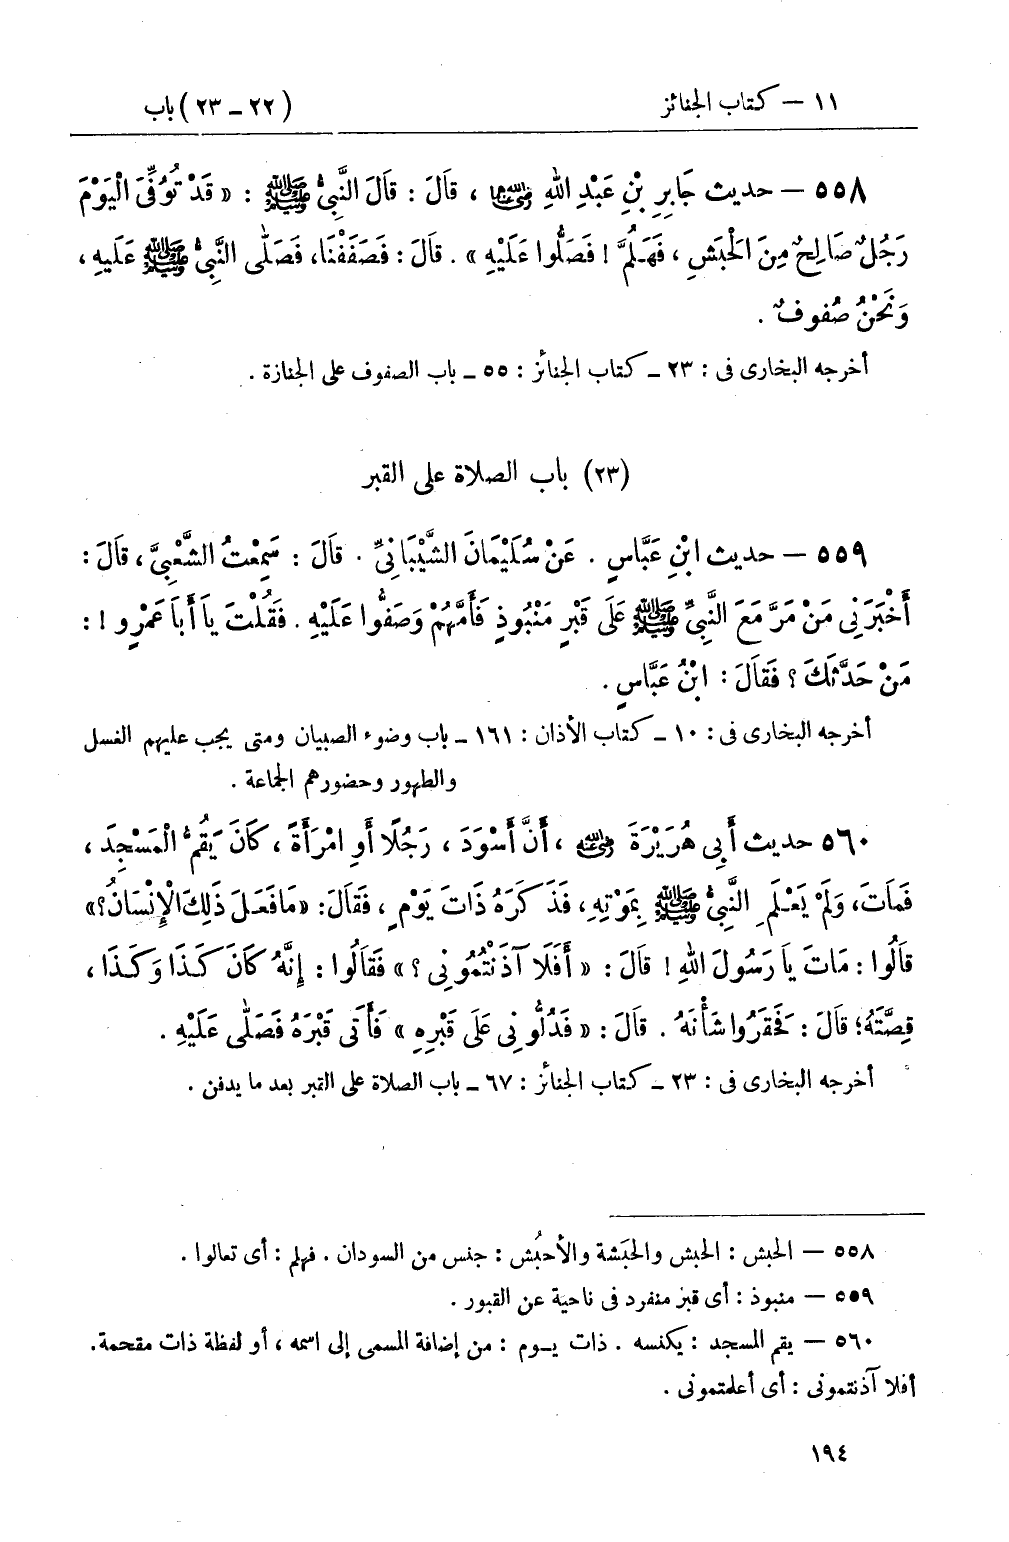 ١١ – كتاب الجنائز (٢٢ – ٢٣) باب
٥٥٨ – حديث جَابِرِ بْنِ عَبْدِ اللهِ رضي الله عنهما ، قَالَ : قَالَ النَّبِيُّ ﷺ : « قَدْ تُوُفِّىَ الْيَوْمَ
رَجُلٌ صَالِحٌ مِنَ الْحَبَشِ ، فَهَلُمَّ ! فَصَلُّوا عَلَيْهِ » . قَالَ : فَصَفَفْنَا، فَصَلَّى النَّبِيُّ ﷺ عَلَيهِ ،
وَنَحْنُ صُفوفٌ .
أخرجه البخارى فى : ٢٣ – كتاب الجنائز : ٥٥ – باب الصفوف على الجنازة .
(٢٣) باب الصلاة على القبر
٥٥٩ – حديث ابْنِ عَبَّاسٍ . عَنْ سُلَيْمَانَ الشَّيْبَانِىِّ . قَالَ : سَمِعْتُ الشَّعْبِىَّ ، قَالَ :
أَخْبَرَنِى مَنْ مَرَّ مَعَ النَّبِىِّ ﷺ عَلَى قَبْرٍ مَنْبُوذٍ فَأَمَّهُمْ وَصَفُّوا عَلَيْهِ . فَقُلْتَ يَا أَبَا عَمْرٍو ! :
مَنْ حَدَّثَكَ ؟ فَقَالَ : ابْنُ عَبَّاسٍ .
أخرجه البخارى فى : ١٠ – كتاب الأذان : ١٦١ – باب وضوء الصبيان ومتى يجب عليهم الغسل
والطهور وحضورهم الجماعة .
٥٦٠ حديث أَبِى هُرَيْرَةَ رضي الله عنه ، أَنَّ أَسْوَدَ ، رَجُلًا أَوِ امْرَأَةً ، كَانَ يَقُمُّ الْمَسْجِدَ ،
فَمَاتَ، وَلَمْ يَعْلَمِ النَّبِىُّ ﷺ بِمَوْتِهِ ، فَذَكَرَهُ ذَاتَ يَوْمٍ ، فَقَالَ : « مَا فَعَلَ ذَلِكَ الْإِنْسَانُ؟»
قَالُوا : مَاتَ يَا رَسُولَ اللهِ ! قَالَ : « أَفَلَا آذَنْتُمُونِى ؟ » فَقَالُوا : إِنَّهُ كَانَ كَذَا وَكَذَا ،
قِصَّتَهُ؛ قَالَ : فَحَقَرُوا شَأْنَهُ . قَالَ : « فَدُلُّونِى عَلَى قَبْرِهِ » فَأَتَى قَبْرَهُ فَصَلَّى عَلَيْهِ .
أخرجه البخارى فى : ٢٣ – كتاب الجنائز : ٦٧ – باب الصلاة على القبر بعد ما يدفن .
٥٥٨ – الحبش : الحبش والحبَشة والأحبُش : جنس من السودان . فهلم : أى تعالوا .
٥٥٩ – منبوذ : أى قبر منفرد فى ناحية عن القبور .
٥٦٠ – يقم المسجد : يكنسه . ذات يوم : من إضافة المسمى إلى اسمه ، أو لفظة ذات مقحمة.
أفلا آذنتمونى : أى أعلمتمونى .
١٩٤